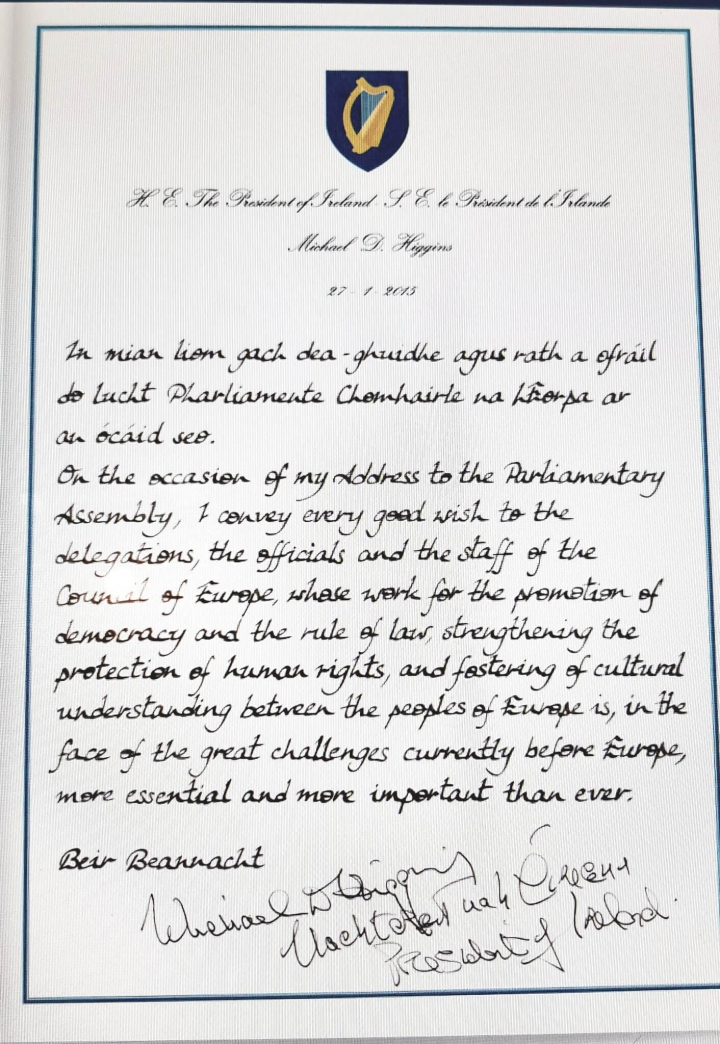 H. E. The President of Ireland - S. E. le Président de l'Irlande
Michael D. Higgins
27 - 1 - 2015
In mian liom gach dea-ghuidhe agus rath a ofráil
do lucht Pharliamente Chomhairle na hEorpa ar
an ócáid seo.
On the occasion of my Address to the Parliamentary
Assembly, I convey every good wish to the
delegations, the officials and the staff of the
Council of Europe, whose work for the promotion of
democracy and the rule of law, strengthening the
protection of human rights, and fostering of cultural
understanding between the peoples of Europe is, in the
face of the great challenges currently before Europe,
more essential and more important than ever.
Beir Beannacht
Michael D Higgins
Uachtarán na hÉireann
President of Ireland.